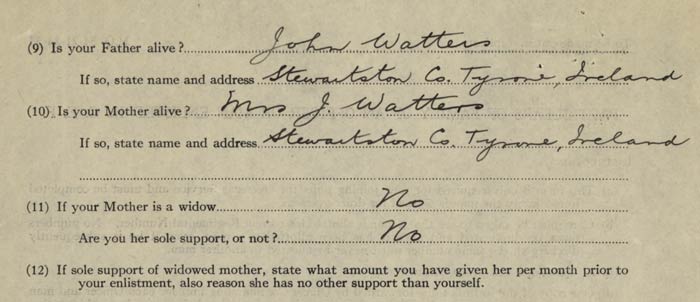 (9) Is your Father alive? John Watters
If so, state name and address Stewartston Co. Tyrone, Ireland
(10) Is your Mother alive? Mrs J. Watters
If so, state name and address Stewartston Co. Tyrone, Ireland
(11) If your Mother is a widow No
Are you her sole support, or not? No
(12) If sole support of widowed mother, state what amount you have given her per month prior to
your enlistment, also reason she has no other support than yourself.